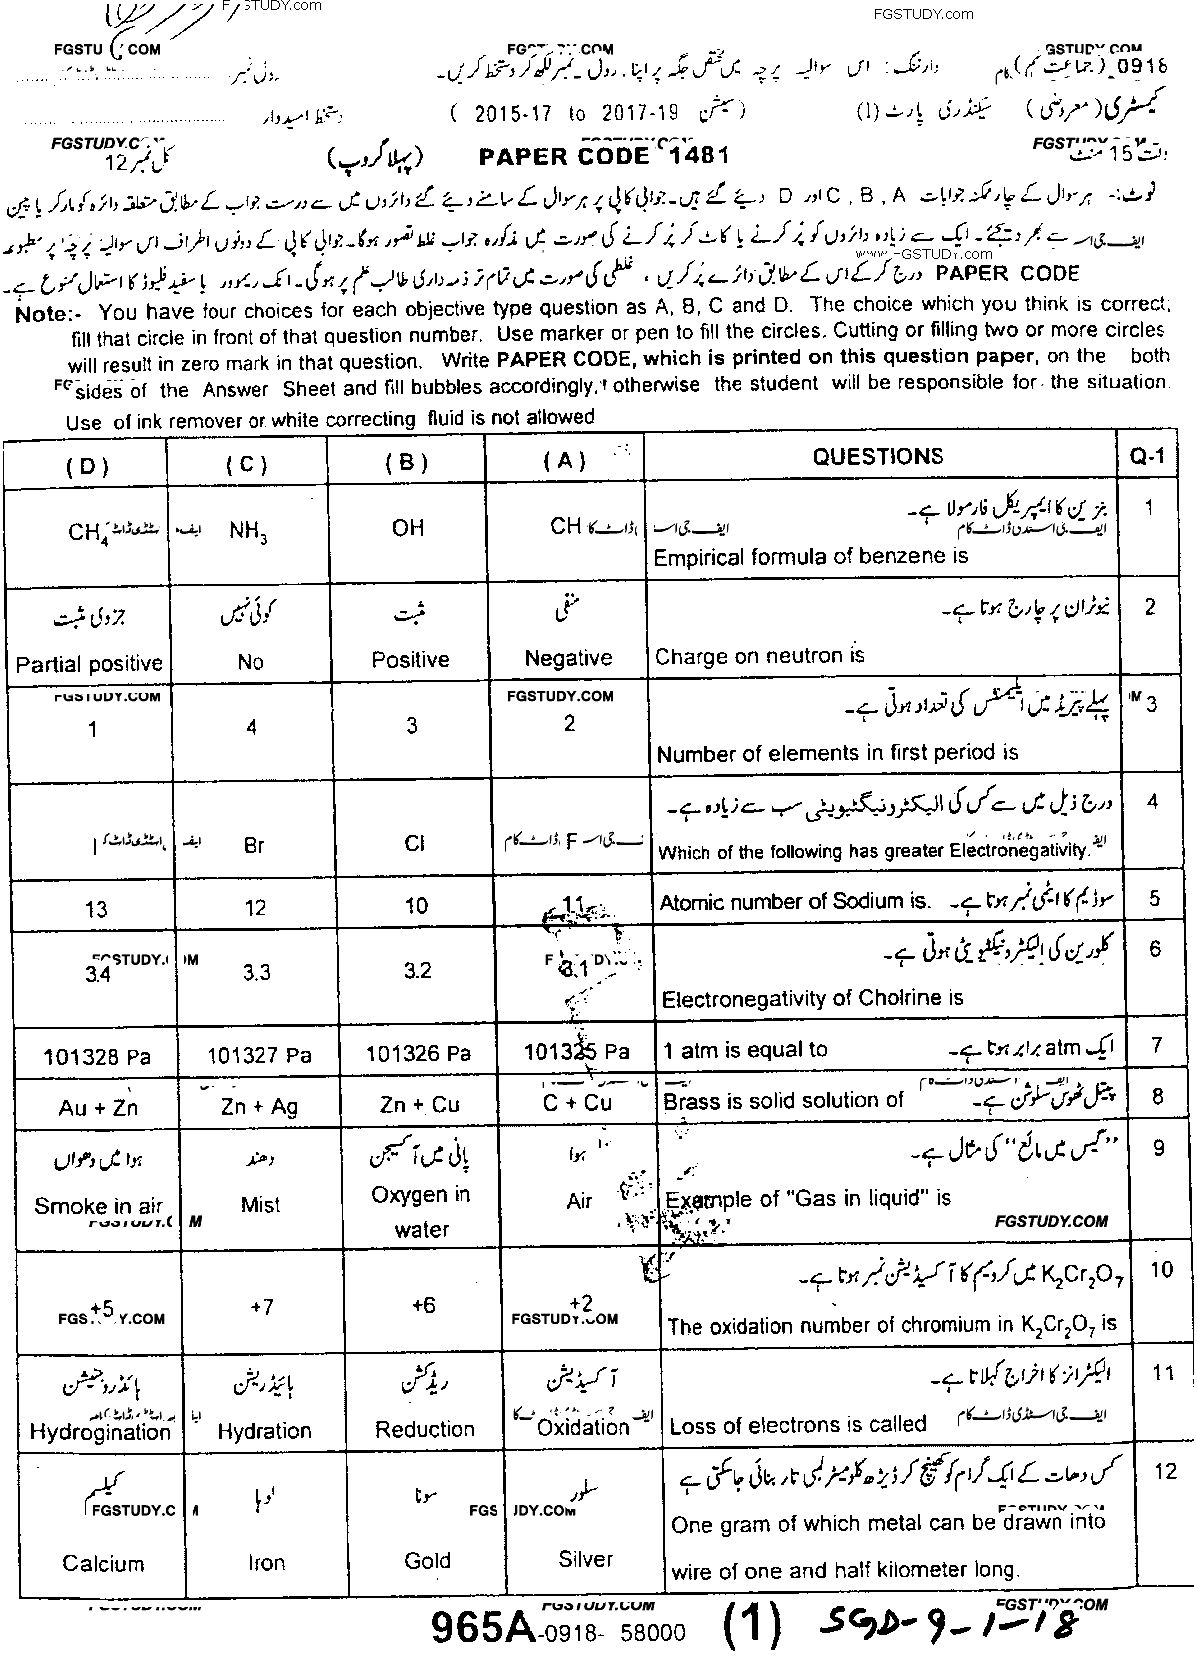 FGSTUDY.com
FGSTUDY.com
0918 (جماعت نہم) وارننگ: اس سوالیہ پرچہ میں مختص جگہ پر اپنا رول نمبر لکھ کر دستخط کریں۔ رول نمبر
کیمسٹری (معروضی) سیکنڈری پارٹ (I) (سیشن 2015-17 to 2017-19) دستخط امیدوار
وقت 15 منٹ PAPER CODE 1481 (پہلا گروپ) کل نمبر 12
نوٹ:- ہر سوال کے چار ممکنہ جوابات A , B , C اور D دیئے گئے ہیں۔ جوابی کاپی پر ہر سوال کے سامنے دیئے گئے دائروں میں سے درست جواب کے مطابق متعلقہ دائرہ کو مارکر یا پین
سے بھر دیجئے۔ ایک سے زیادہ دائروں کو پُر کرنے یا کاٹ کر پُر کرنے کی صورت میں مذکورہ جواب غلط تصور ہوگا۔ جوابی کاپی کے دونوں اطراف اس سوالیہ پرچہ پر مطبوعہ
PAPER CODE درج کر کے اس کے مطابق دائرے پُر کریں ، غلطی کی صورت میں تمام تر ذمہ داری طالب علم پر ہوگی۔ انک ریموور یا سفید فلیوڈ کا استعمال ممنوع ہے۔
Note:- You have four choices for each objective type question as A, B, C and D. The choice which you think is correct;
fill that circle in front of that question number. Use marker or pen to fill the circles. Cutting or filling two or more circles
will result in zero mark in that question. Write PAPER CODE, which is printed on this question paper, on the both
sides of the Answer Sheet and fill bubbles accordingly, otherwise the student will be responsible for the situation.
Use of ink remover or white correcting fluid is not allowed
(D) (C) (B) (A) QUESTIONS Q-1
بنزین کا ایمپیریکل فارمولا ہے۔ 1
CH4 NH3 OH CH Empirical formula of benzene is
جزوی مثبت کوئی نہیں مثبت منفی نیوٹران پر چارج ہوتا ہے۔ 2
Partial positive No Positive Negative Charge on neutron is
FGSTUDY.COM FGSTUDY.COM
پہلے پیریڈ میں ایلیمنٹس کی تعداد ہوتی ہے۔ 3
1 4 3 2 Number of elements in first period is
درج ذیل میں سے کس کی الیکٹرونیگٹیویٹی سب سے زیادہ ہے۔ 4
I Br Cl F Which of the following has greater Electronegativity.
13 12 10 11 Atomic number of Sodium is. سوڈیم کا ایٹمی نمبر ہوتا ہے۔ 5
کلورین کی الیکٹرونیگٹیویٹی ہوتی ہے۔ 6
3.4 3.3 3.2 3.1 Electronegativity of Cholrine is
101328 Pa 101327 Pa 101326 Pa 101325 Pa 1 atm is equal to ایک atm برابر ہوتا ہے۔ 7
Au + Zn Zn + Ag Zn + Cu C + Cu Brass is solid solution of پیتل ٹھوس سلوشن ہے۔ 8
ہوا میں دھواں دھند پانی میں آکسیجن ہوا "گیس میں مائع" کی مثال ہے۔ 9
Smoke in air Mist Oxygen in water Air Example of "Gas in liquid" is
FGSTUDY.COM
K2Cr2O7 میں کرومیم کا آکسیڈیشن نمبر ہوتا ہے۔ 10
+5 +7 +6 +2 The oxidation number of chromium in K2Cr2O7 is
ہائڈروجنیشن ہائیڈریشن ریڈکشن آکسیڈیشن الیکٹرانز کا اخراج کہلاتا ہے۔ 11
Hydrogination Hydration Reduction Oxidation Loss of electrons is called
کیلشیم لوہا سونا سلور کس دھات کے ایک گرام کو کھینچ کر ڈیڑھ کلومیٹر لمبی تار بنائی جاسکتی ہے 12
One gram of which metal can be drawn into
Calcium Iron Gold Silver wire of one and half kilometer long.
965A-0918- 58000 (1) SGD-9-1-18